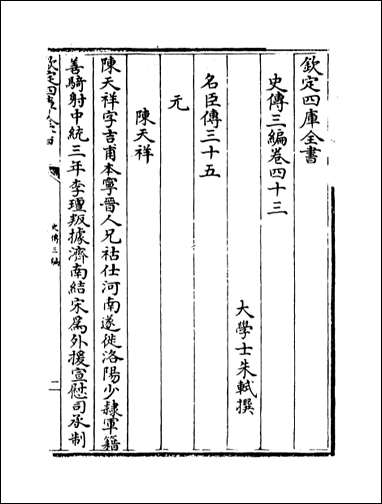 欽定四庫全書
史傳三編卷四十三
大學士朱軾撰
名臣傳三十五
元
陳天祥
陳天祥字吉甫本寧晉人兄祐仕河南遂徙洛陽少隸軍籍
善騎射中統三年李璮叛據濟南結宋為外援宣慰司承制
欽定四庫全書
史傳三編
二